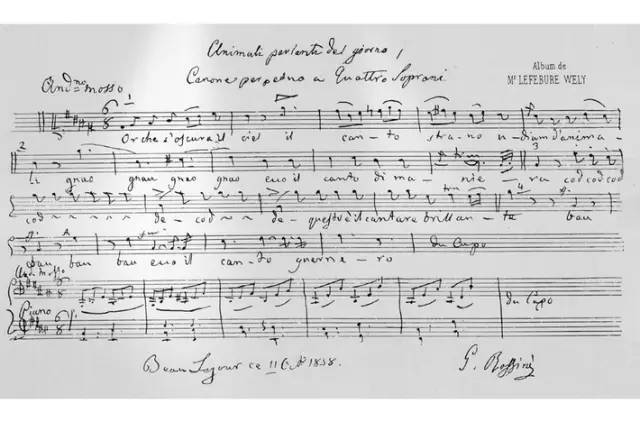 Animali parlanti del giorno
Canone perpetuo a Quattro Soprani
Album de
Mr LEFEBURE WELY
And.no mosso
1
Or che s'oscura il ciel il can - to stra - no u - diam d'anima -
2 3
li gnao gnau gnao gnao ecco il canto di ma - nie - ra cod cod cod
4
cod de - cod de - questo è il cantare brillan - te bau
bau bau bau ecco il can - to guerrie - ro Da Capo
And. mosso
Piano Da Capo
Beau Sejour ce 11 1858.
G. Rossini